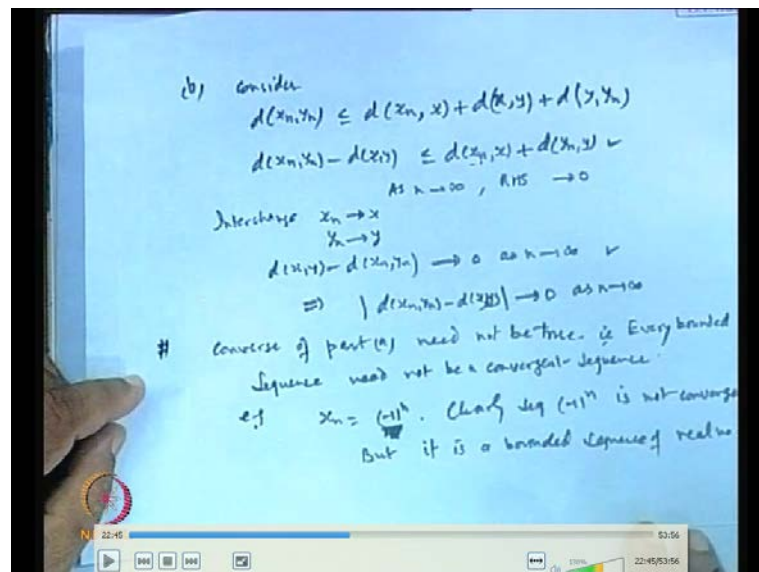 (b) consider
d(xn,yn) ≤ d(xn, x) + d(x,y) + d(y,yn)
d(xn,yn) - d(x,y) ≤ d(xn,x) + d(yn,y) ✓
As n→∞, RHS →0
Interchange xn → x
yn → y
d(x,y) - d(xn,yn) → 0 as n→∞ ✓
⇒ | d(xn,yn) - d(x,y) | → 0 as n→∞
# Converse of part (a) need not be true. ie Every bounded
Sequence need not be a convergent sequence.
eg xn = (-1)^n. Clearly seq (-1)^n is not converge
But it is a bounded sequence of real no
22:45 53:56
100% 22:45/53:56